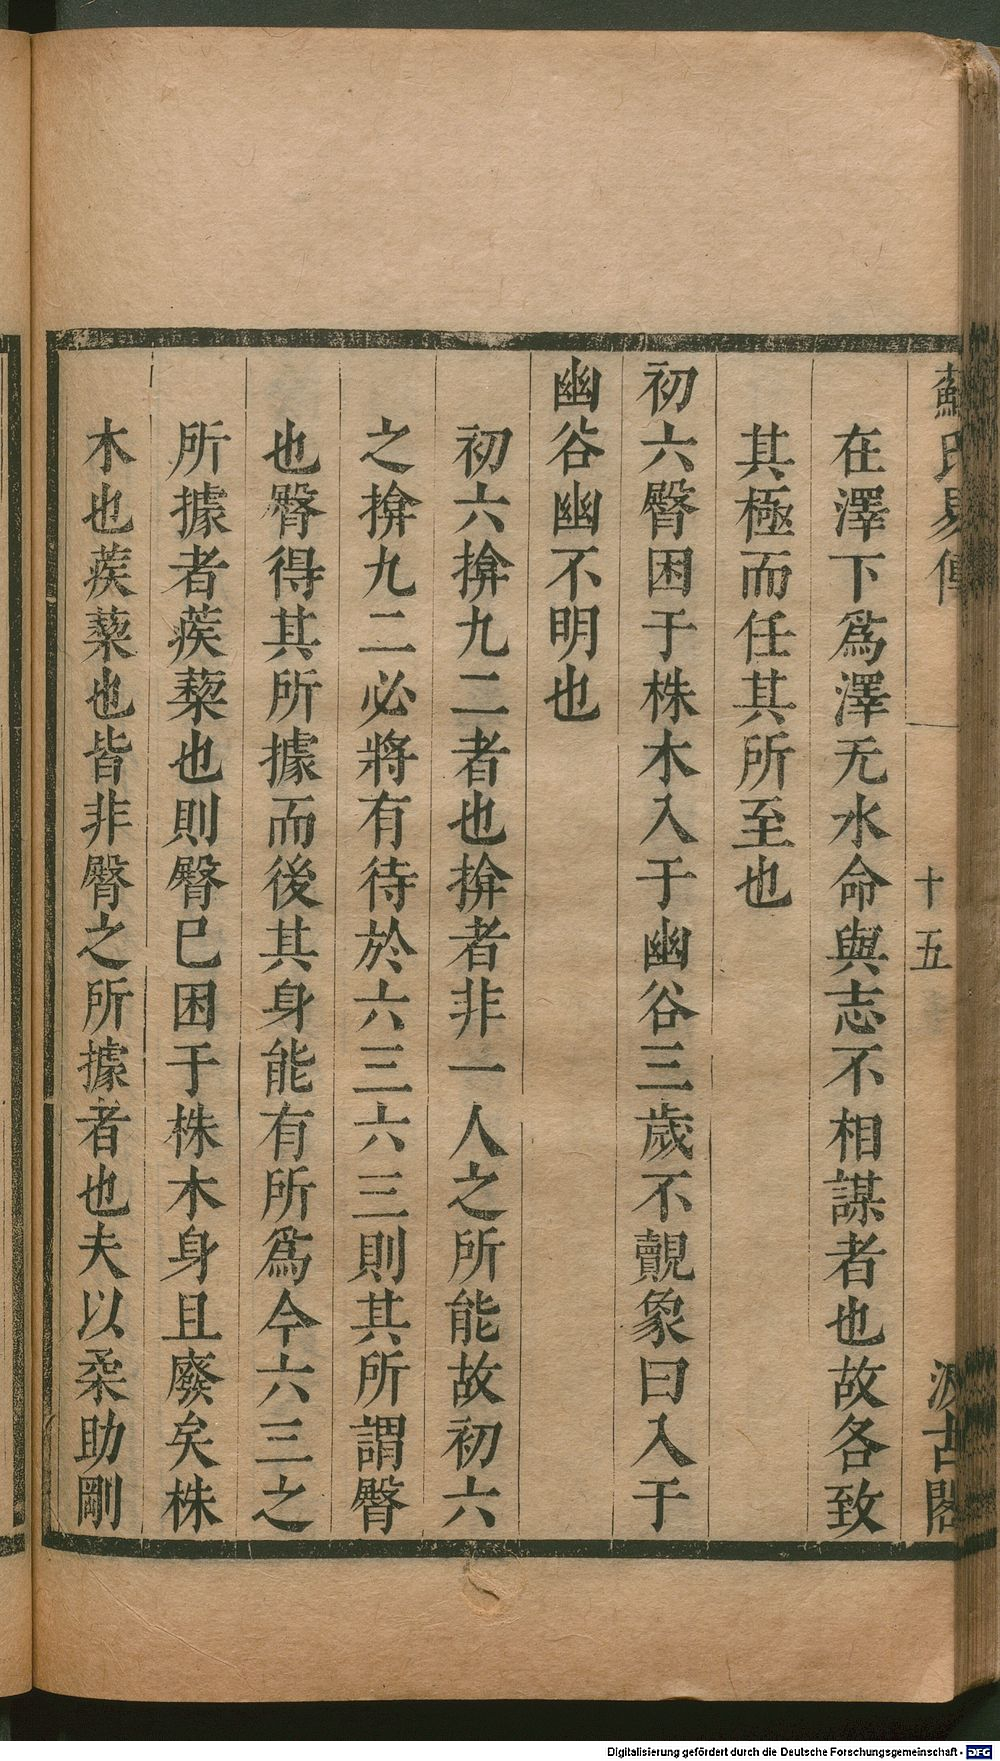 蘇氏易傳 十五 汲古閣
在澤下爲澤无水命與志不相謀者也故各致
其極而任其所至也
初六臀困于株木入于幽谷三歲不覿象曰入于
幽谷幽不明也
初六揜九二者也揜者非一人之所能故初六
之揜九二必將有待於六三六三則其所謂臀
也臀得其所據而後其身能有所爲今六三之
所據者蒺蔾也則臀已困于株木身且廢矣株
木也蒺蔾也皆非臀之所據者也夫以柔助剛
Digitalisierung gefördert durch die Deutsche Forschungsgemeinschaft - DFG